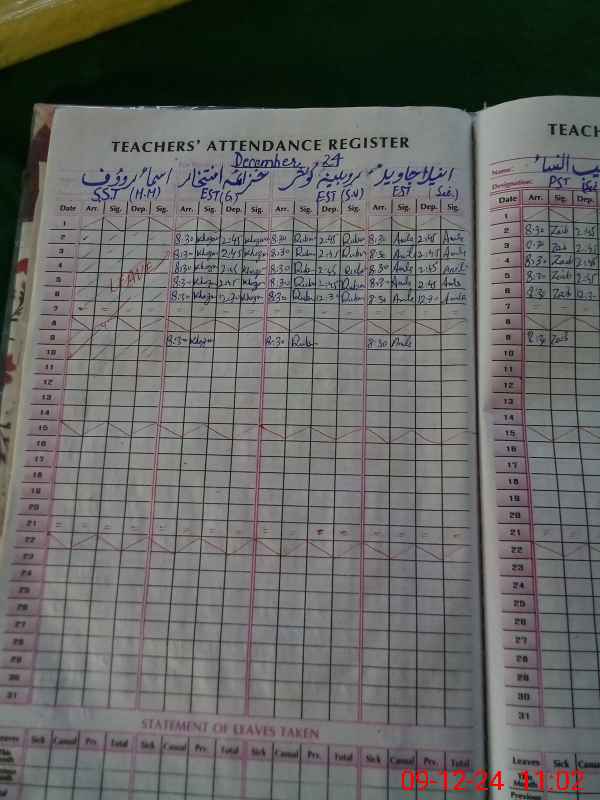 TEACHERS' ATTENDANCE REGISTER
December. 24
اسماء روؤف
SST (H.M)
EST(G)
روبینہ کوثر
EST (S.V)
انیلا جاوید
EST
Date Arr. Sig. Dep. Sig. Arr. Sig. Dep. Sig. Arr. Sig. Dep. Sig. Arr. Sig. Dep. Sig.
1
2 8:30 2:45 8:30 Rubin 2:45 Rubin 8:30 2:45
3 8:30 2:45 8:30 Rubin 2:45 Rubin 8:30 2:45
4 8:30 2:45 8:30 Rubin 2:45 8:30 2:45
5 LEAVE 8:30 2:45 8:30 Rubin 2:45 Rubin 8:30 2:45
6 8:30 12:30 8:30 Rubin 12:30 Rubin 8:30 12:30
7
8
9 8:30 8:30 Rubin 8:30
10
11
12
13
14
15
16
17
18
19
20
21
22
23
24
25
26
27
28
29
30
31
STATEMENT OF LEAVES TAKEN
Leaves Sick Casual Prv. Total Sick Casual Prv. Total Sick Casual Prv. Total Sick Casual Prv. Total
This Month
TEACH
Name:
Designation: PST
Date Arr. Sig. Dep.
1
2 8:30 Zaib 2:45
3 8:30 Zaib 2:45
4 8:30 Zaib 2:45
5 8:30 Zaib 2:45
6 8:30 Zaib
7
8
9 8:30 Zaib
10
11
12
13
14
15
16
17
18
19
20
21
22
23
24
25
26
27
28
29
30
31
Leaves Sick Casual
This Month
Previous
09-12-24 11:02